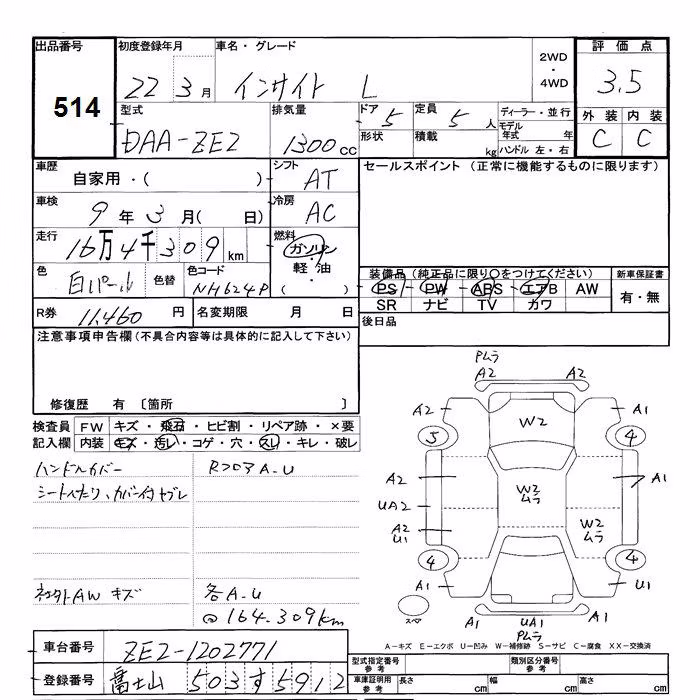 出品番号
514
初度登録年月
22 3月
車名・グレード
インサイト L
2WD
・
4WD
評価点
3.5
外装 内装
C C
型式
DAA-ZE2
排気量
1300cc
ドア 5
形状
定員 5人
積載 kg
ディーラー・並行
モデル年式 年
ハンドル 左・右
車歴
自家用・( )
シフト
AT
車検
9年3月( 日)
冷房
AC
走行
16万4千309km
燃料
ガソリン
・
軽油
( )
色
白パール
色替
色コード
NH624P
R券 11,460円
名変期限 月 日
セールスポイント (正常に機能するものに限ります)
装備品 (純正品に限り○をつけてください)
PS PW ABS エアB AW
SR ナビ TV カワ
新車保証書
有・無
後日品
注意事項申告欄(不具合内容等は具体的に記入して下さい)
修復歴 有 〔箇所 〕
検査員 FW キズ・飛石・ヒビ割・リペア跡・×要
記入欄 内装 キズ・汚レ・コゲ・穴・スレ・キレ・破レ
ハンドルカバー
シートへたり、カバー付ヤブレ
AW キズ
Rフロア A.U
各A.U
@164.309km
ムラ
A2 A2
A2 A1
5 4
W2
A2 A1
W2
ムラ
UA2
A2
U1
W2
ムラ
4 4
A1 U1
A1 UA1 A1
ムラ
スペア
A-キズ E-エクボ U-凹み W-補修跡 S-サビ C-腐食 XX-交換済
車台番号 ZE2-1202771
登録番号 富士山 503す5912
型式指定番号
参考
類別区分番号
参考
車庫証明用
参考
長さ cm
幅 cm
高さ cm